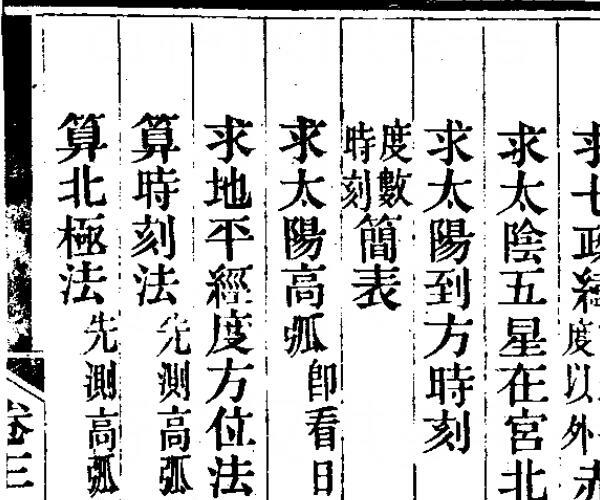 求七政經度以外赤
求太陰五星在宮北
求太陽到方時刻
度數時刻簡表
求太陽高弧卽看日
求地平經度方位法
算時刻法先測高弧
算北極法先測高弧
卷三